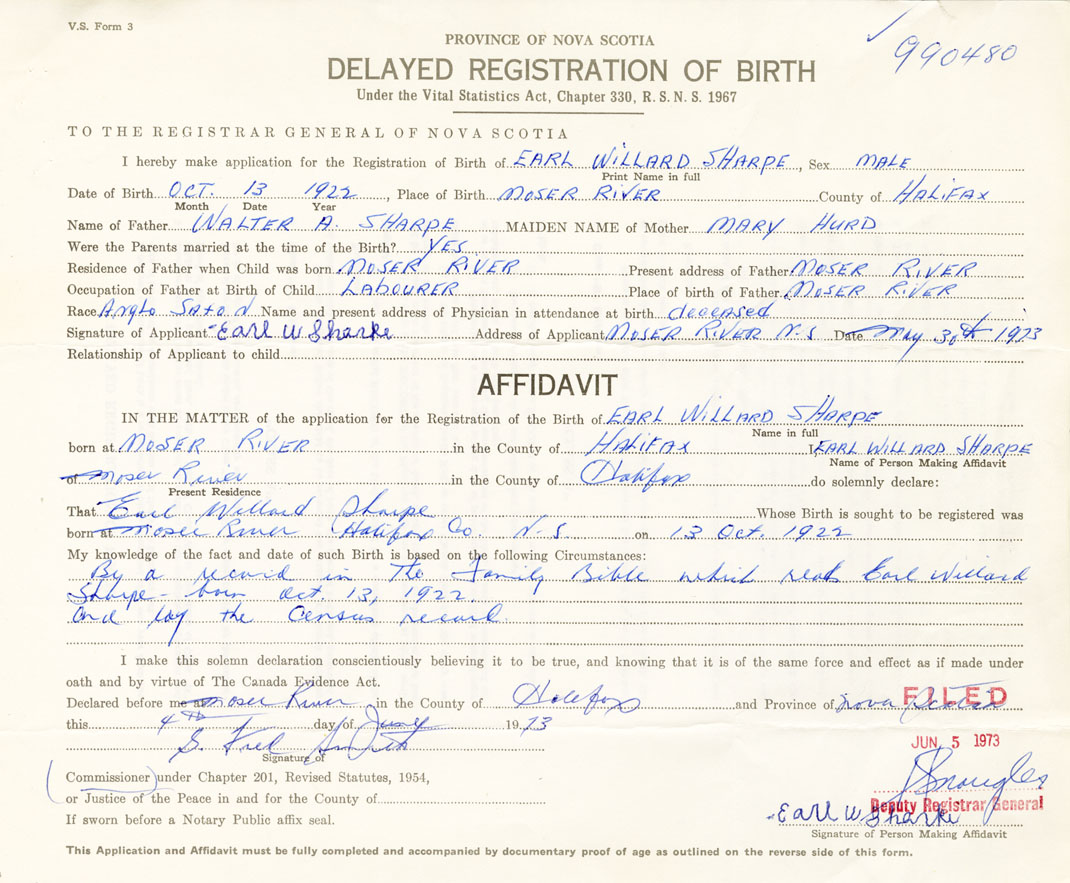 V.S. Form 3
990480
PROVINCE OF NOVA SCOTIA
DELAYED REGISTRATION OF BIRTH
Under the Vital Statistics Act, Chapter 330, R. S. N. S. 1967
TO THE REGISTRAR GENERAL OF NOVA SCOTIA
I hereby make application for the Registration of Birth of EARL WILLARD SHARPE, Sex MALE
Print Name in full
Date of Birth OCT. 13 1922, Place of Birth MOSER RIVER County of HALIFAX
Month Date Year
Name of Father WALTER A. SHARPE MAIDEN NAME of Mother MARY HURD
Were the Parents married at the time of the Birth? YES
Residence of Father when Child was born MOSER RIVER Present address of Father MOSER RIVER
Occupation of Father at Birth of Child LABOURER Place of birth of Father MOSER RIVER
Race Anglo Saxon Name and present address of Physician in attendance at birth deceased
Signature of Applicant Earl W Sharpe Address of Applicant MOSER RIVER N.S Date May 30th 1973
Relationship of Applicant to child
AFFIDAVIT
IN THE MATTER of the application for the Registration of the Birth of EARL WILLARD SHARPE
Name in full
born at MOSER RIVER in the County of HALIFAX I, EARL WILLARD SHARPE
Name of Person Making Affidavit
of Moser River in the County of Halifax do solemnly declare:
Present Residence
That Earl Willard Sharpe Whose Birth is sought to be registered was
born at Moser River Halifax Co. N.S on 13 Oct. 1922
My knowledge of the fact and date of such Birth is based on the following Circumstances:
By a record in the Family Bible which reads Earl Willard
Sharpe - born Oct. 13, 1922.
and by the Census record.
I make this solemn declaration conscientiously believing it to be true, and knowing that it is of the same force and effect as if made under
oath and by virtue of The Canada Evidence Act.
Declared before me at Moser River in the County of Halifax and Province of Nova Scotia
FILED
this 4th day of June 1973
JUN 5 1973
S. Fred Smith
Signature of
Commissioner under Chapter 201, Revised Statutes, 1954,
or Justice of the Peace in and for the County of
Deputy Registrar General
Earl W Sharpe
If sworn before a Notary Public affix seal.
Signature of Person Making Affidavit
This Application and Affidavit must be fully completed and accompanied by documentary proof of age as outlined on the reverse side of this form.